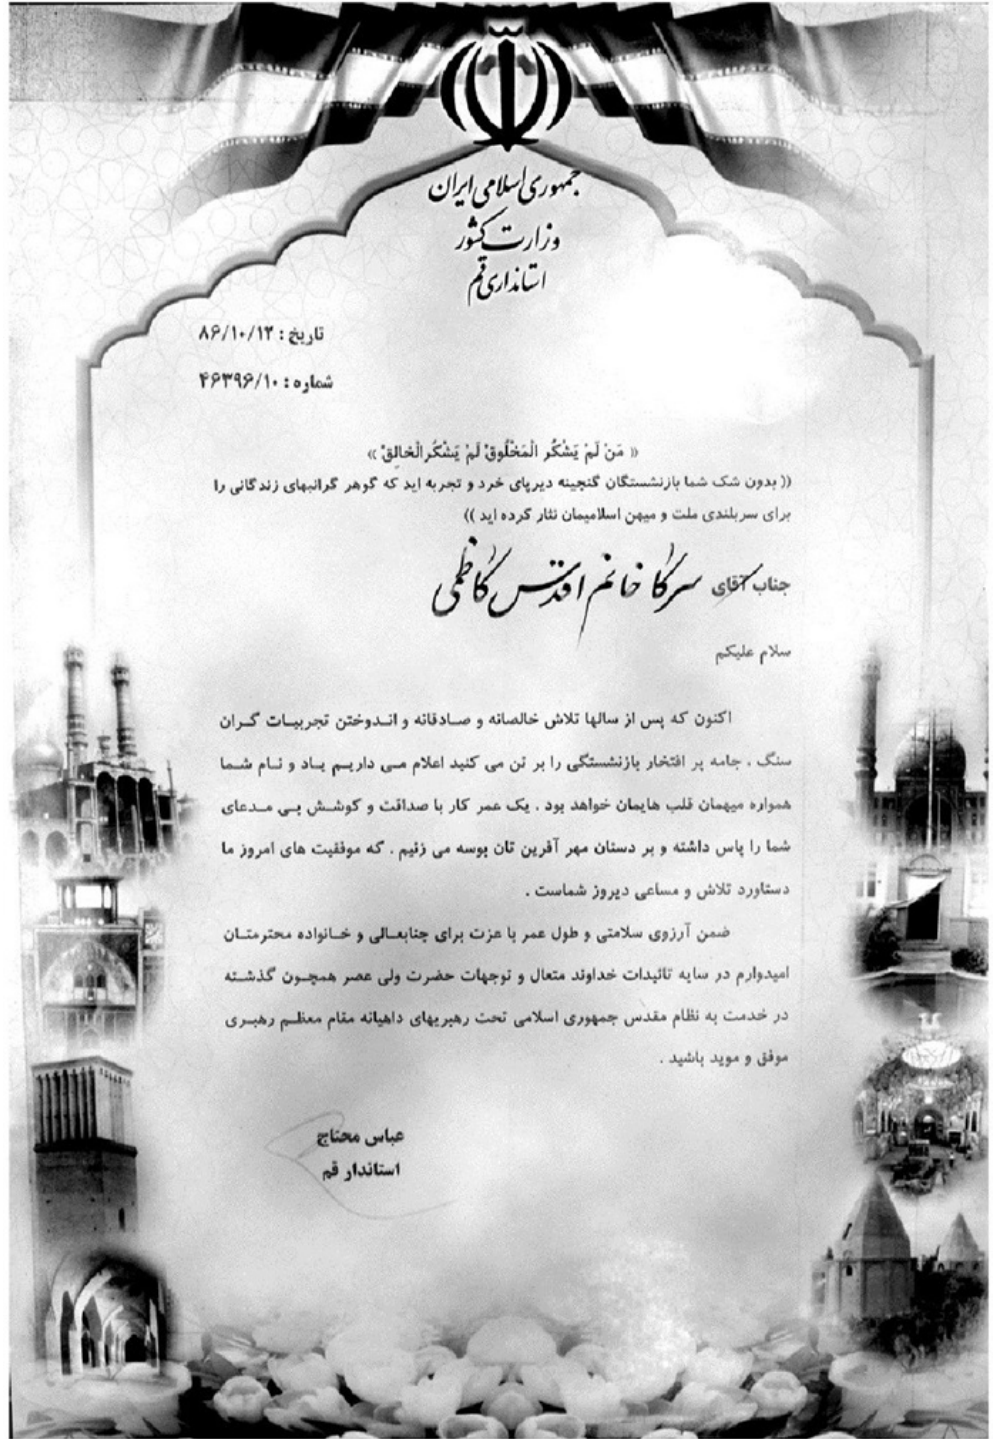 جمهوری اسلامی ایران
وزارت کشور
استانداری قم
تاریخ : ۸۶/۱۰/۱۲
شماره : ۴۶۳۹۶/۱۰
« مَنْ لَمْ یَشْکُر الْمَخْلُوقْ لَمْ یَشْکُرالْخالِقْ »
(( بدون شک شما بازنشستگان گنجینه دیرپای خرد و تجربه اید که گوهر گرانبهای زندگانی را
برای سربلندی ملت و میهن اسلامیمان نثار کرده اید ))
جناب آقای سرکار خانم اقدس کاظمی
سلام علیکم
اکنون که پس از سالها تلاش خالصانه و صادقانه و اندوختن تجربیات گران
سنگ ، جامه پر افتخار بازنشستگی را بر تن می کنید اعلام می داریم یاد و نام شما
همواره میهمان قلب هایمان خواهد بود . یک عمر کار با صداقت و کوشش بی مدعای
شما را پاس داشته و بر دستان مهر آفرین تان بوسه می زنیم . که موفقیت های امروز ما
دستاورد تلاش و مساعی دیروز شماست .
ضمن آرزوی سلامتی و طول عمر با عزت برای جنابعالی و خانواده محترمتان
امیدوارم در سایه تائیدات خداوند متعال و توجهات حضرت ولی عصر همچون گذشته
در خدمت به نظام مقدس جمهوری اسلامی تحت رهبریهای داهیانه مقام معظم رهبری
موفق و موید باشید .
عباس محتاج
استاندار قم